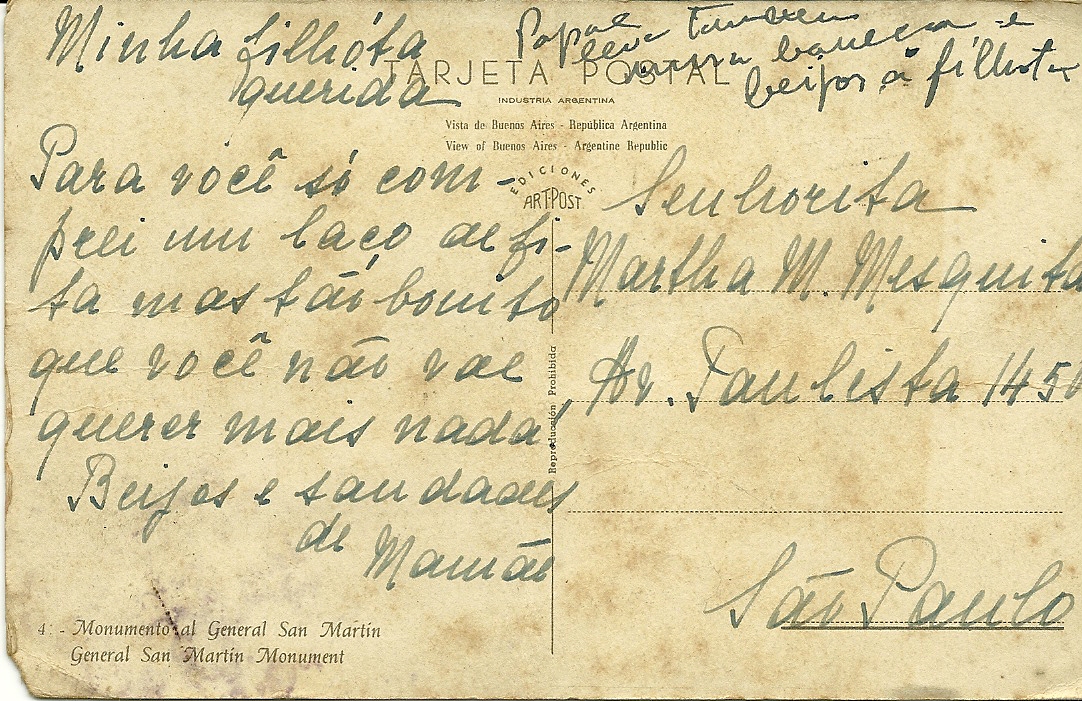 Minha filhóta
querida
Para você só com-
prei um laço de fi-
ta mas tão bonito
que você não vae
querer mais nada!
Beijos e saudades
de Mamãe
4 - Monumento al General San Martín
General San Martín Monument
Papae leva tambem
uma boneca e
beijos á filhota
TARJETA POSTAL
INDUSTRIA ARGENTINA
Vista de Buenos Aires - República Argentina
View of Buenos Aires - Argentine Republic
EDICIONES
ART-POST
Reproducción Prohibida
Senhorita
Martha M. Mesquita
Av. Paulista 1450
São Paulo